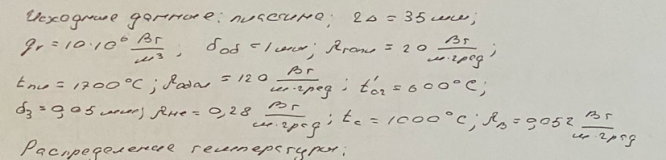 Исходные данные: пластина; 2Δ = 35 мм;
qᵥ = 10·10⁶ Вт/м³; δоб = 1 мм; λтопл = 20 Вт/м·град
tпл = 1700°C; λобол = 120 Вт/м·град; t'с2 = 600°C;
δ₃ = 0,05 мм; λHe = 0,28 Вт/м·град; tс = 1000°C; λв = 0,052 Вт/м·град
Распределение температуры: